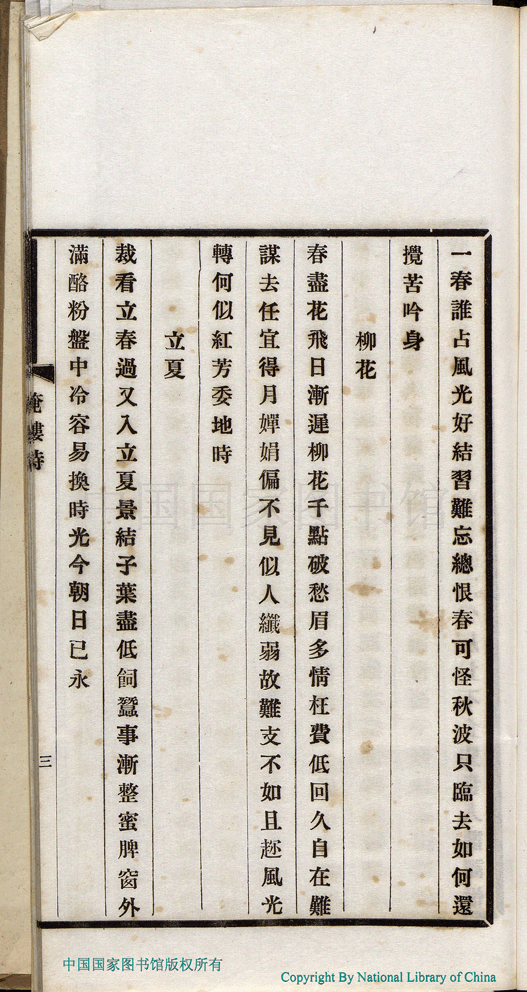 一春誰占風光好結習難忘總恨春可怪秋波只臨去如何還
攪苦吟身
柳花
春盡花飛日漸遲柳花千點破愁眉多情枉費低回久自在難
謀去任宜得月嬋娟偏不見似人纖弱故難支不如且趂風光
轉何似紅芳委地時
立夏
裁看立春過又入立夏景結子葉盡低飼蠶事漸整蜜脾窗外
滿酪粉盤中冷容易換時光今朝日已永
樓詩
三
中国国家图书馆
中国国家图书馆版权所有
Copyright By National Library of China